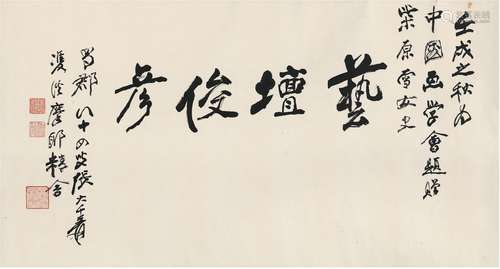 壬戌之秋為
中國画学會題贈
柴原雪女史
藝壇俊彥
蜀郡八十四叟張大千爰
雙溪摩耶精舍